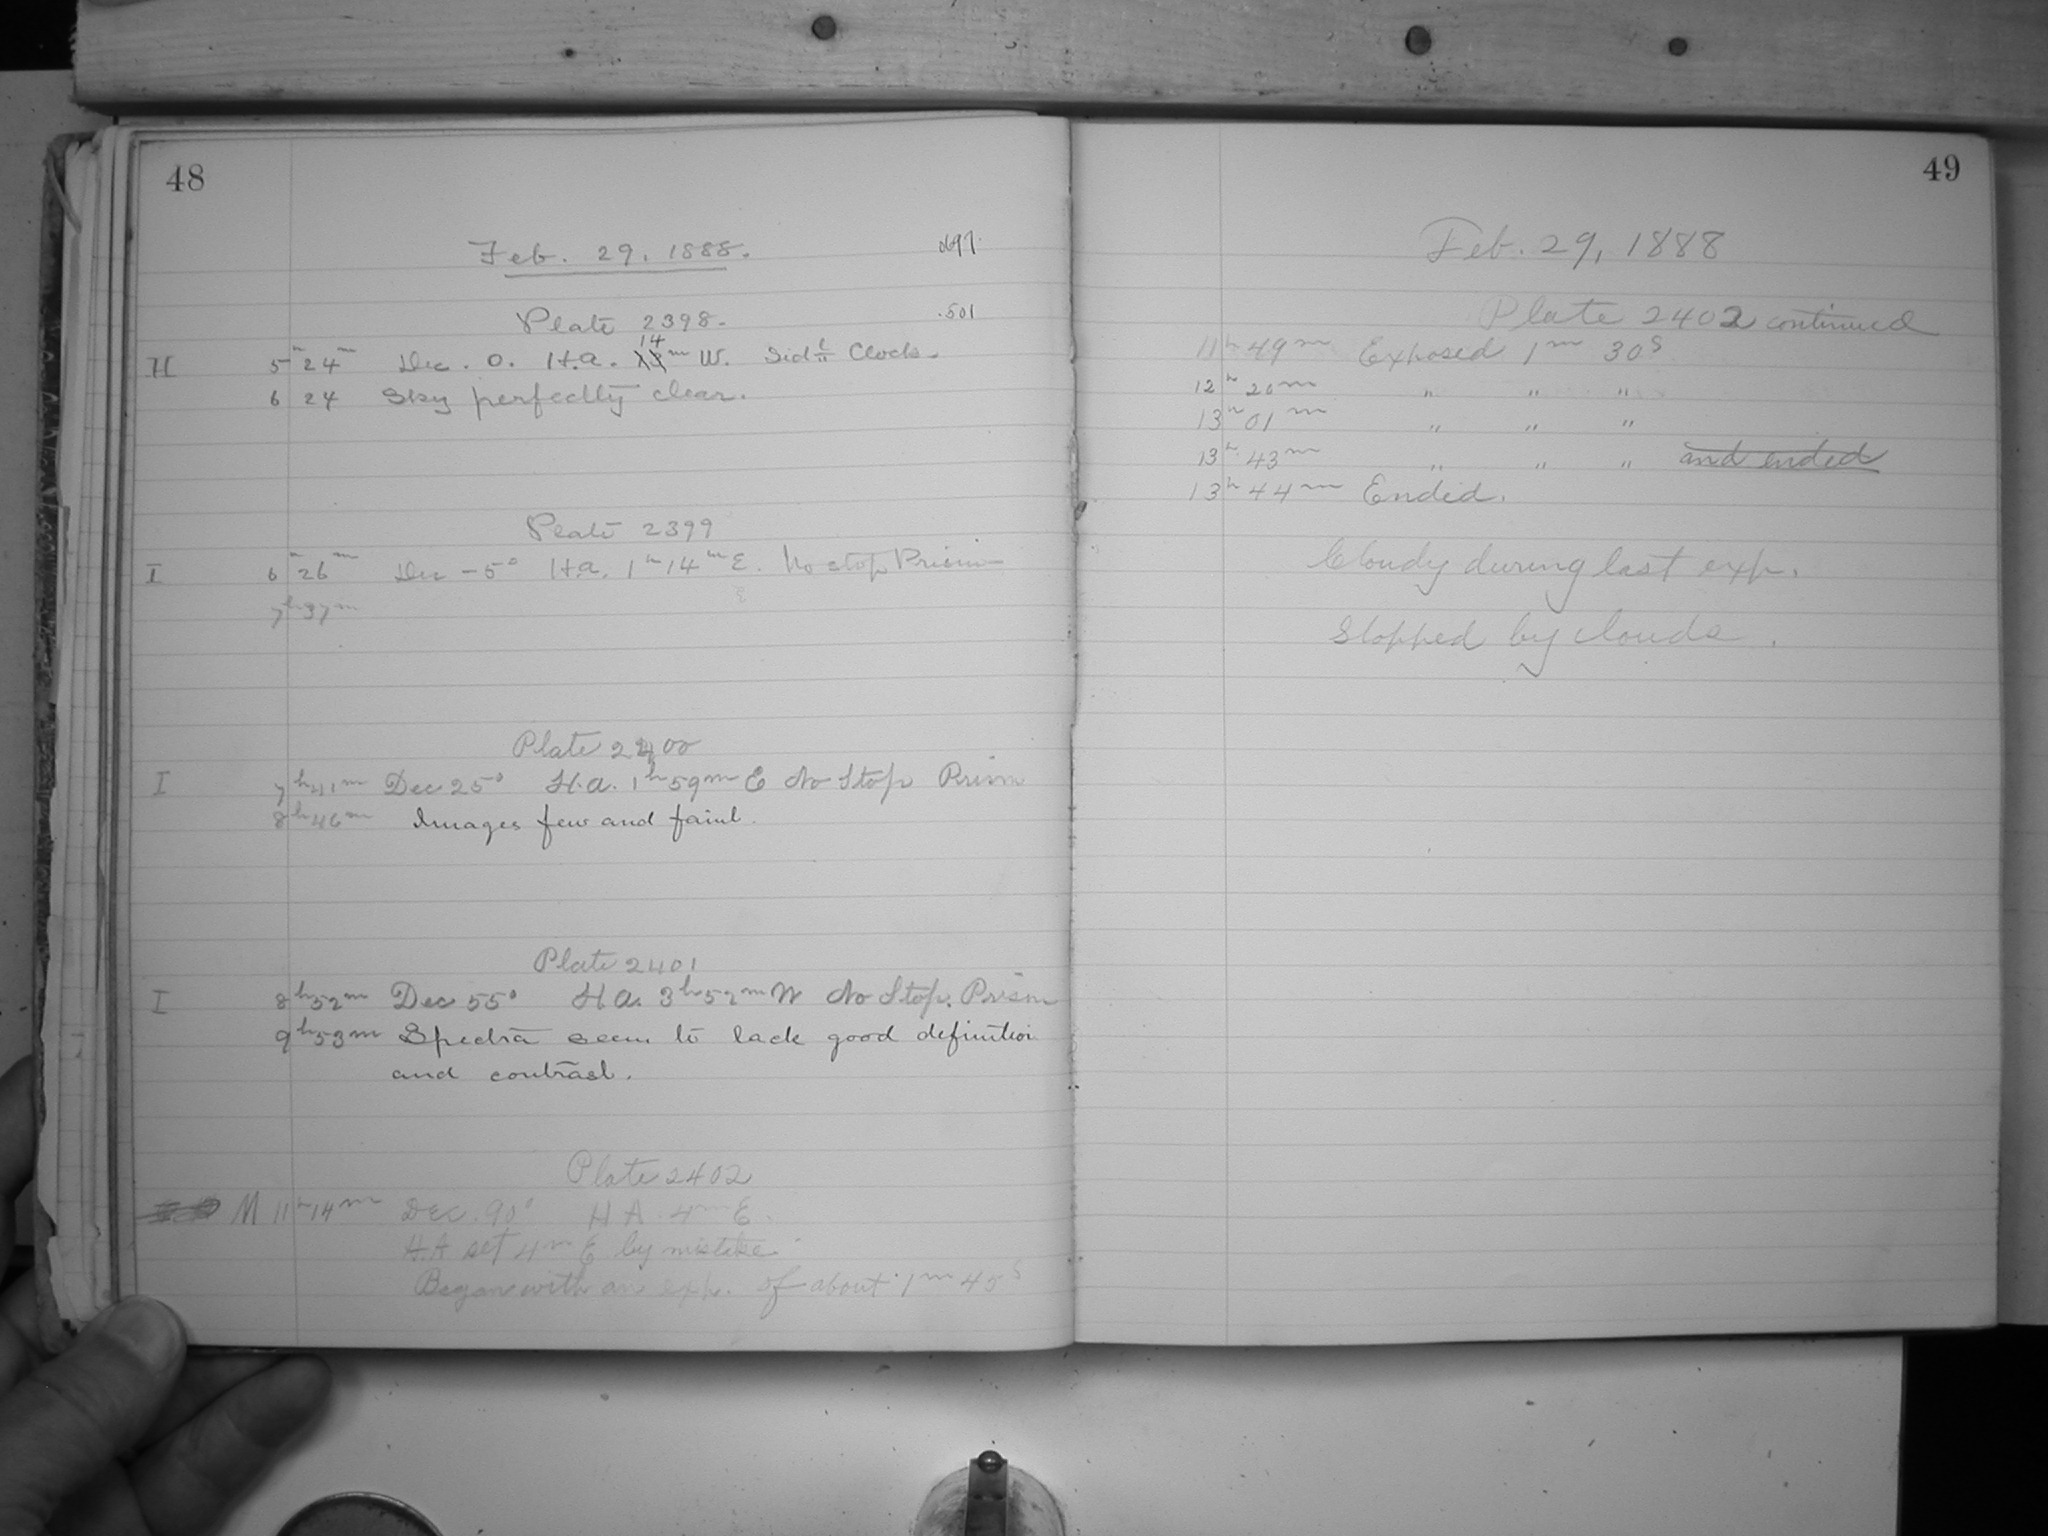 48
Feb. 29, 1888.
.697
Plate 2398.
.501
14
H 5h 24m Dec. 0. H.a. m W. Sidl Clock.
6 24 Sky perfectly clear.
Plate 2399
I 6h 26m Dec -5° H.a. 1h 14m E. No stop Prism
7h 37m
Plate 2400
I 7h 41m Dec 25° H.a. 1h 59m E No Stop Prism
8h 46m Images few and faint.
Plate 2401
I 8h 52m Dec 55° H.a. 3h 52m W No Stop. Prism
9h 53m Spectra seem to lack good definition
and contrast.
Plate 2402
M 11h 14m Dec. 90° H A. 4m E.
H.A set 4m E by mistake.
Began with an exp. of about 1m 45s
49
Feb. 29, 1888
Plate 2402 continued
11h 49m Exposed 1m 30s
12h 20m " " "
13h 01m " " "
13h 43m " " " and ended
13h 44m Ended.
Cloudy during last exp.
Stopped by clouds.